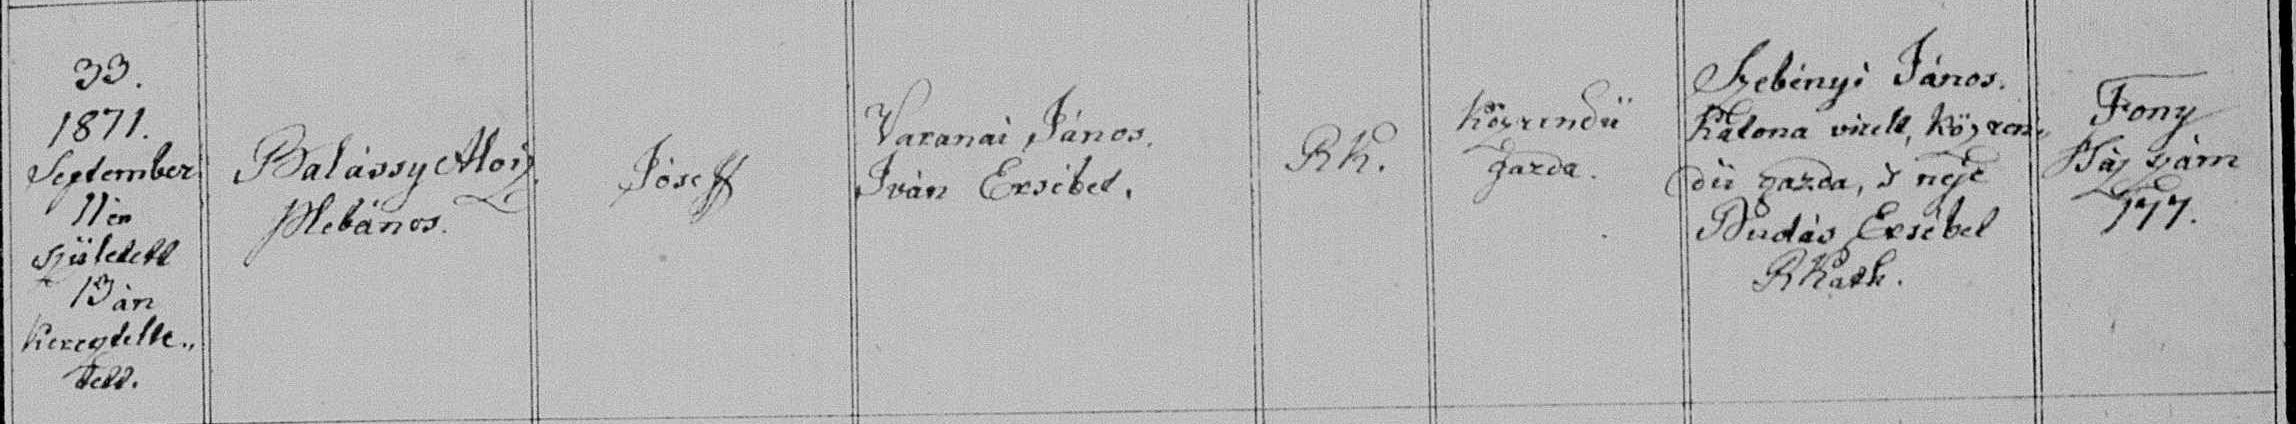 33.
1871.
September
11én
született
13án
Kereztelte„
tett.
Balássy Aloiz
plebános.
Jóseff
Varanai János.
Iván Ersébet.
RK.
Közrendü
gazda.
Szebényi János.
Katona viselt, közren„
dü gazda, s neje
Dudás Ersébet
RKath.
Fony
Ház szám
177.